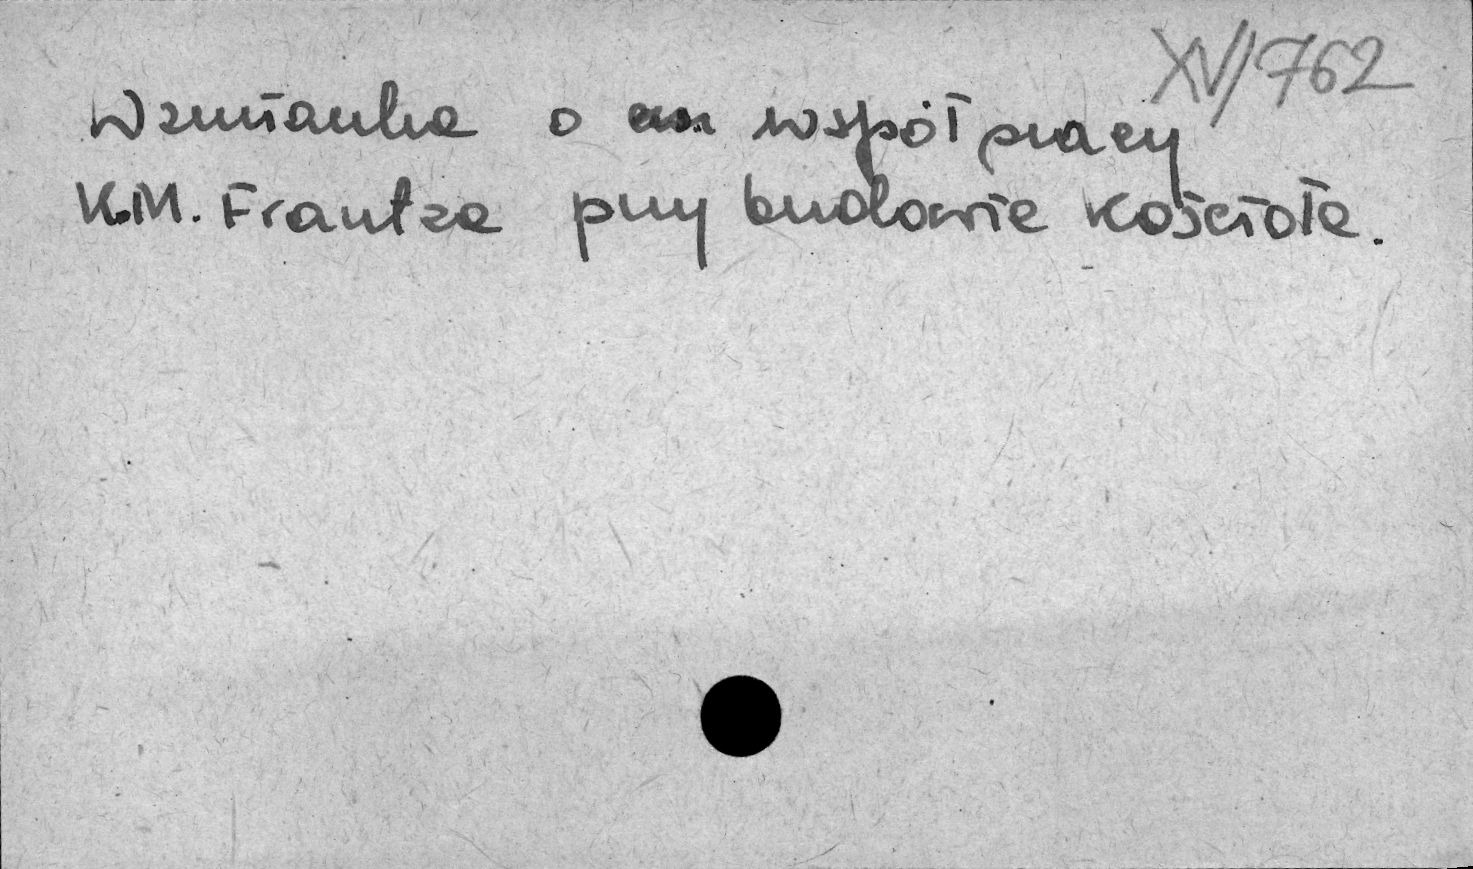 XV/762
Wzmianka o współpracy
K.M. Frantza przy budowie kościoła.